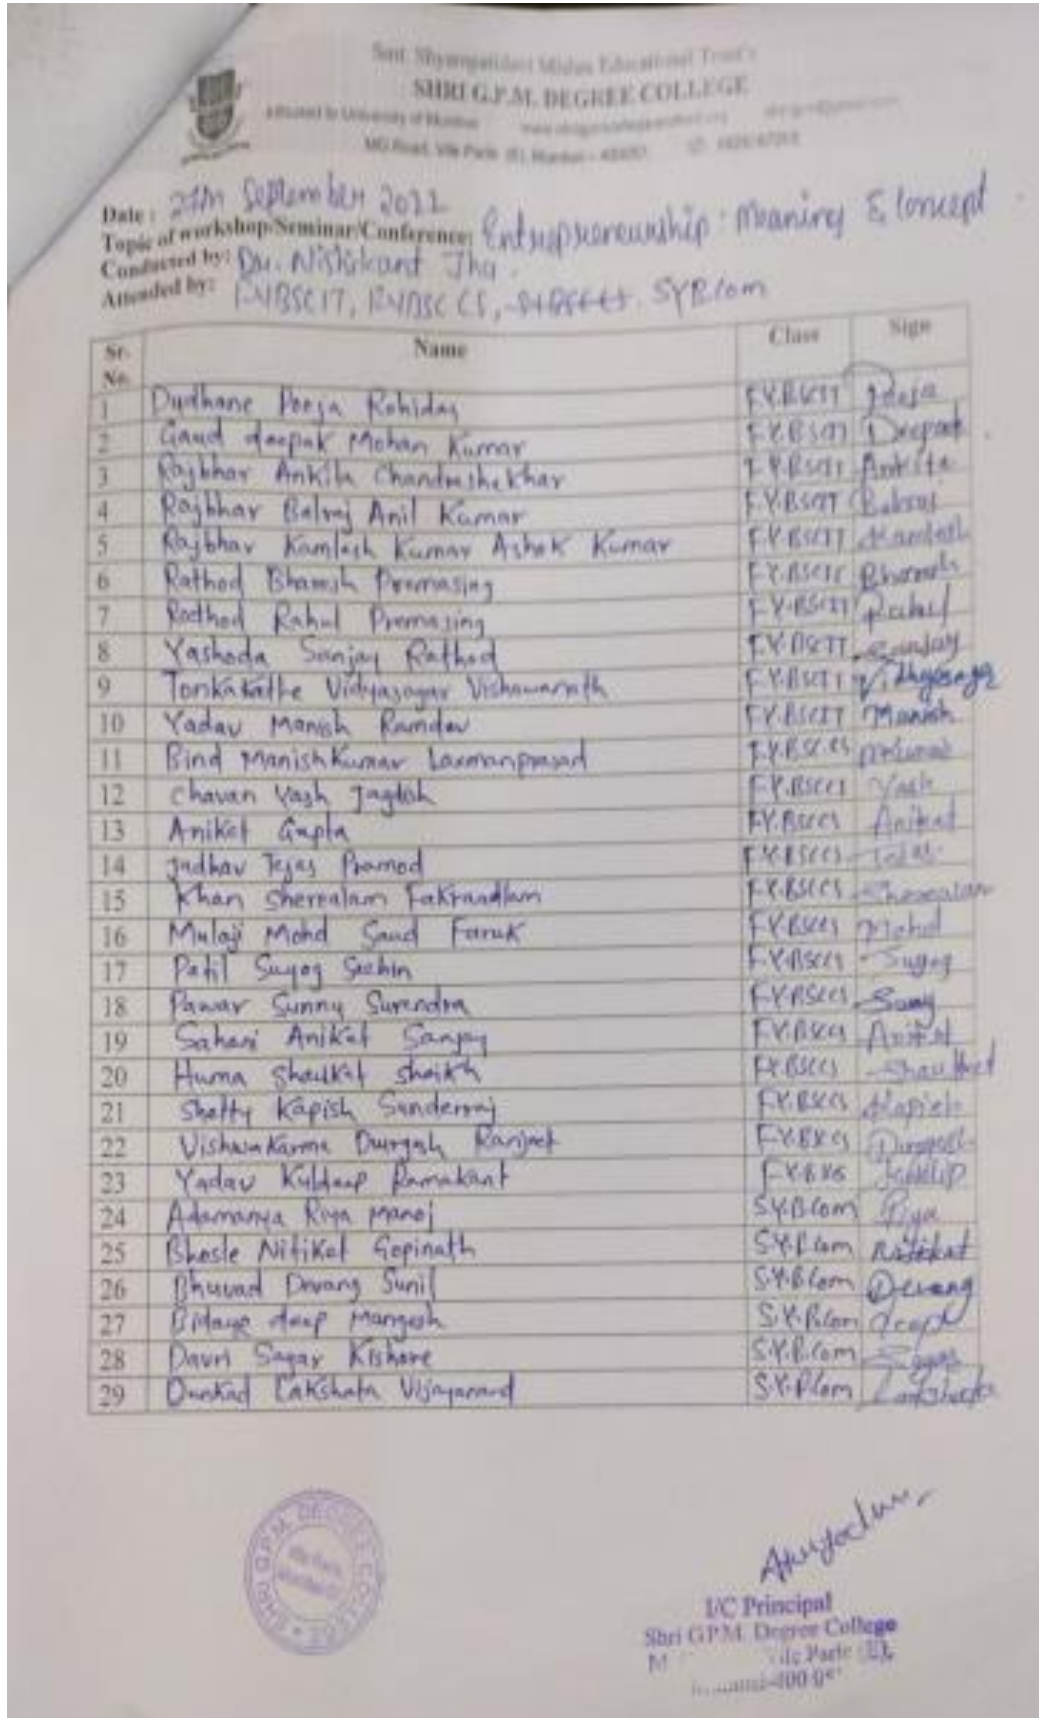 SHRI G.P.M. DEGREE COLLEGE
Affiliated to University of Mumbai
MG Road, Vile Parle (E), Mumbai - 400057
Date: September 2022
Topic of workshop/Seminar/Conference: Entrepreneurship: Meaning & Concept
Conducted by: Dr. Nishikant Jha.
Attended by: F.Y.BSC IT, F.Y.BSC CS, S.Y.B.Com
Sr. No. Name Class Sign
1 Dudhane Pooja Rohidas F.Y.BSCIT Pooja
2 Gaud deepak Mohan Kumar F.Y.BSCIT Deepak
3 Rajbhar Ankita Chandrashekhar F.Y.BSCIT Ankita
4 Rajbhar Balraj Anil Kumar F.Y.BSCIT Balraj
5 Rajbhar Kamlesh Kumar Ashok Kumar F.Y.BSCIT Kamlesh
6 Rathod Premasing F.Y.BSCIT
7 Rathod Rahul Premasing F.Y.BSCIT Rahul
8 Yashoda Sanjay Rathod F.Y.BSCIT Sanjay
9 Vidyasagar Vishawanath F.Y.BSCIT Vidhyasagar
10 Yadav Manish Ramdev F.Y.BSCIT Manish
11 Bind Manishkumar Laxmanprasad F.Y.BSC.CS
12 Chavan Yash F.Y.BSCCS Yash
13 Aniket Gupta F.Y.BSCCS Aniket
14 Jadhav Tejas Pramod F.Y.BSCCS Tejas
15 Khan Sherealam F.Y.BSCCS Sherealam
16 Mulaji Mohd Saud Faruk F.Y.BSCCS Mohd
17 Patil Suyog Sachin F.Y.BSCCS Suyog
18 Pawar Sunny Surendra F.Y.BSCCS Sunny
19 Sahani Aniket Sanjay F.Y.BSCCS Aniket
20 Huma Shaukat Shaikh F.Y.BSCCS Shaukat
21 Shetty Kapish Sunderraj F.Y.BSCCS Kapish
22 Vishwakarma Durgesh Ranjeet F.Y.BSCCS Durgesh
23 Yadav Kuldeep Ramakant F.Y.BSCS Kuldip
24 Adamanya Riya Manoj S.Y.B.Com Riya
25 Bhosle Nitiket Gopinath S.Y.B.Com Nitikat
26 Bhuvad Devang Sunil S.Y.B.Com Devang
27 Bidaye deep Mangesh S.Y.B.Com deep
28 Davri Sagar Kishore S.Y.B.Com Sagar
29 Lakshata Vijayanand S.Y.B.Com Lakshata
SHRI G.P.M. DEGREE COLLEGE
I/C Principal
Shri G.P.M. Degree College
Vile Parle (E),